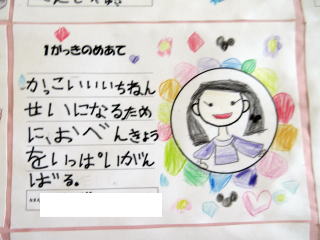 1がっきのめあて
かっこいいいちねん
せいになるため
に、おべんきょう
をいっぱいがん
ばる。